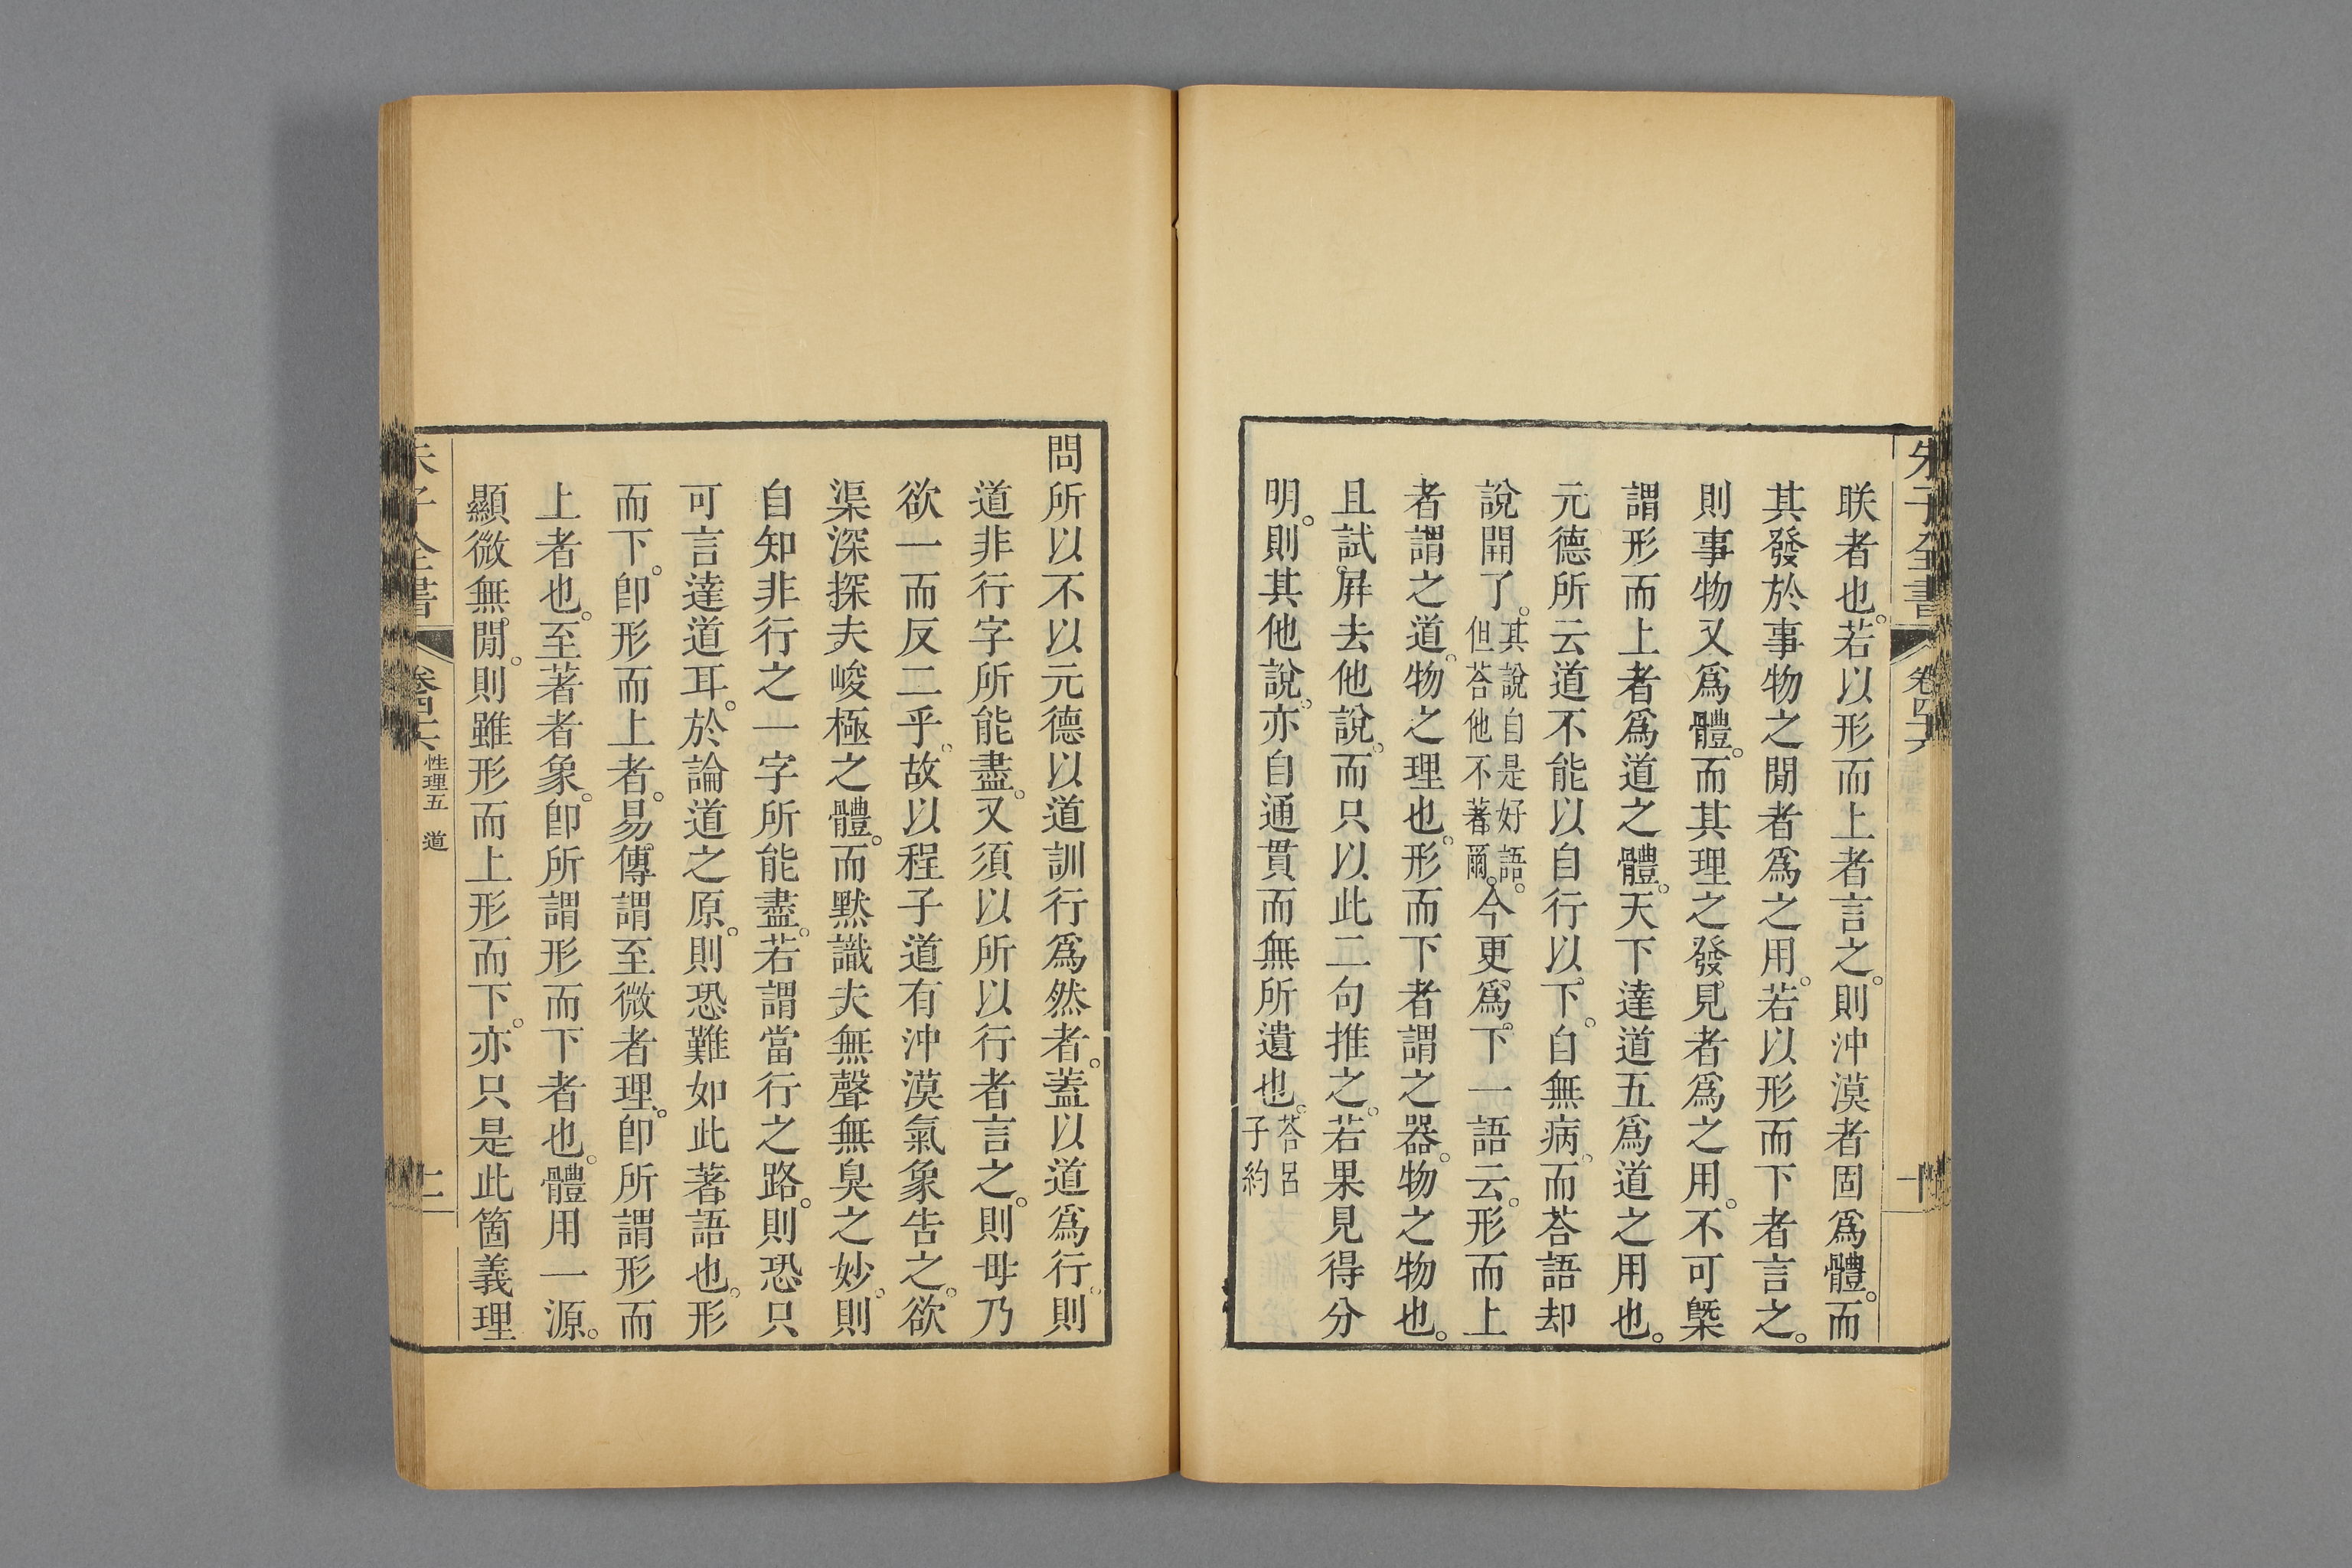 朱子全書 卷四十六 十
眹者也。若以形而上者言之。則沖漠者固爲體。而
其發於事物之閒者爲之用。若以形而下者言之。
則事物又爲體。而其理之發見者爲之用。不可槩
謂形而上者爲道之體。天下達道五爲道之用也。
元德所云道不能以自行以下。自無病。而荅語却
說開了。其說自是好語。但荅他不著爾。今更爲下一語云。形而上
者謂之道。物之理也。形而下者謂之器。物之物也。
且試屏去他說。而只以此二句推之。若果見得分
明。則其他說。亦自通貫而無所遺也。荅呂子約
問所以不以元德以道訓行爲然者。蓋以道爲行。則
道非行字所能盡。又須以所以行者言之。則毋乃
欲一而反二乎。故以程子道有沖漠氣象告之。欲
渠深探夫峻極之體。而默識夫無聲無臭之妙。則
自知非行之一字所能盡。若謂當行之路。則恐只
可言達道耳。於論道之原。則恐難如此著語也。形
而下。卽形而上者。易傳謂至微者理。卽所謂形而
上者也。至著者象。卽所謂形而下者也。體用一源。
顯微無閒。則雖形而上形而下。亦只是此箇義理
朱子全書 卷四十六 性理五 道